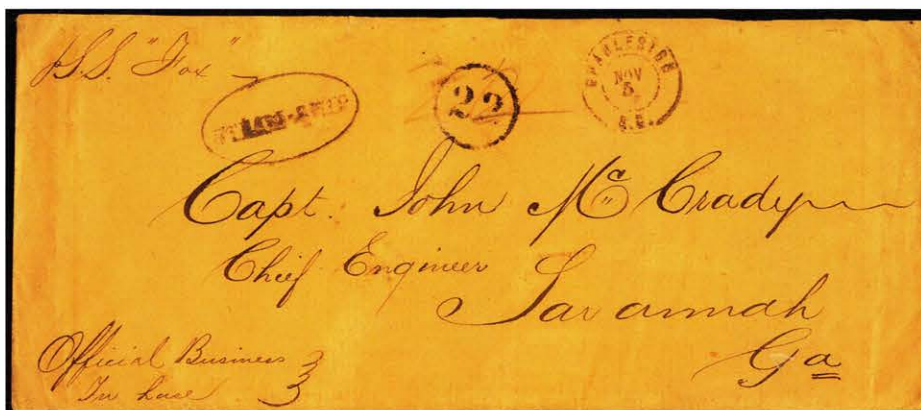 p S.S. "Fox"
STEAM-SHIP
22
CHARLESTON
NOV
5
S.C.
Capt. John McCrady
Chief Engineer
Savannah
Ga
Official Business
In haste